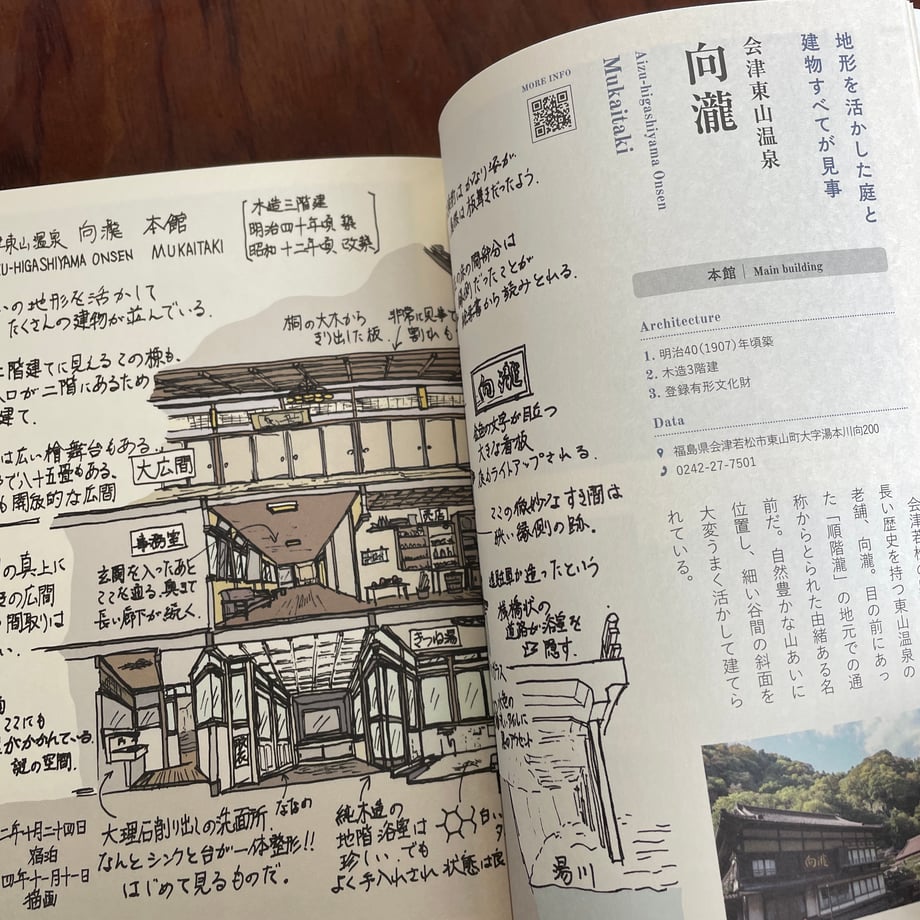 東山温泉 向瀧 本館
ZU-HIGASHIYAMA ONSEN MUKAITAKI
木造三階建
明治四十年頃 築
昭和十二年頃 改築
いの地形を活かして
たくさんの建物が並んでいる.
二階建てに見えるこの棟も、
入口が二階にあるため
建て.
は広い檜舞台もある..
で八十五畳もある。
も開放的な広間
桐の大木から
きり出した板.
非常に見事で
割れも
大広間
事務室
玄関を入ったあと
ここを通る.奥まで
長い廊下が続く.
売店
の真上に
の広間
間取りは
きつね湯
ここにも
がかかんている.
謎の空間.
二年十月二十四日
宿泊
四年十月十一日
描画
大理石削り出しの洗面所
なんとシンクと台が一体整形!!
はじめて見るものだ。
純木造の
地階浴室は
珍しい.でも
よく手入れされ 状態は良
白い
地形を活かした庭と
建物すべてが見事
会津東山温泉
向瀧
Aizu-higashiyama Onsen
Mukaitaki
MORE INFO
はかなり姿が.
は板葺きだったよう.
の間部分は
だったことが
から読みとれる.
向瀧
の文字が目立つ
大きな看板
ライトアップされる.
ここの微妙なすき間は
狭い縁側の跡.
違ったという
桟橋状の
道路が浴室を
隠す.
湯川
本館 | Main building
Architecture
1. 明治40(1907)年頃築
2. 木造3階建
3. 登録有形文化財
Data
福島県会津若松市東山町大字湯本川向200
0242-27-7501
会津若松
長い歴史を持つ東山温泉の
老舗、向瀧。目の前にあっ
た「順階瀧」の地元での通
称からとられた由緒ある名
前だ。自然豊かな山あいに
位置し、細い谷間の斜面を
大変うまく活かして建てら
れている。
向瀧